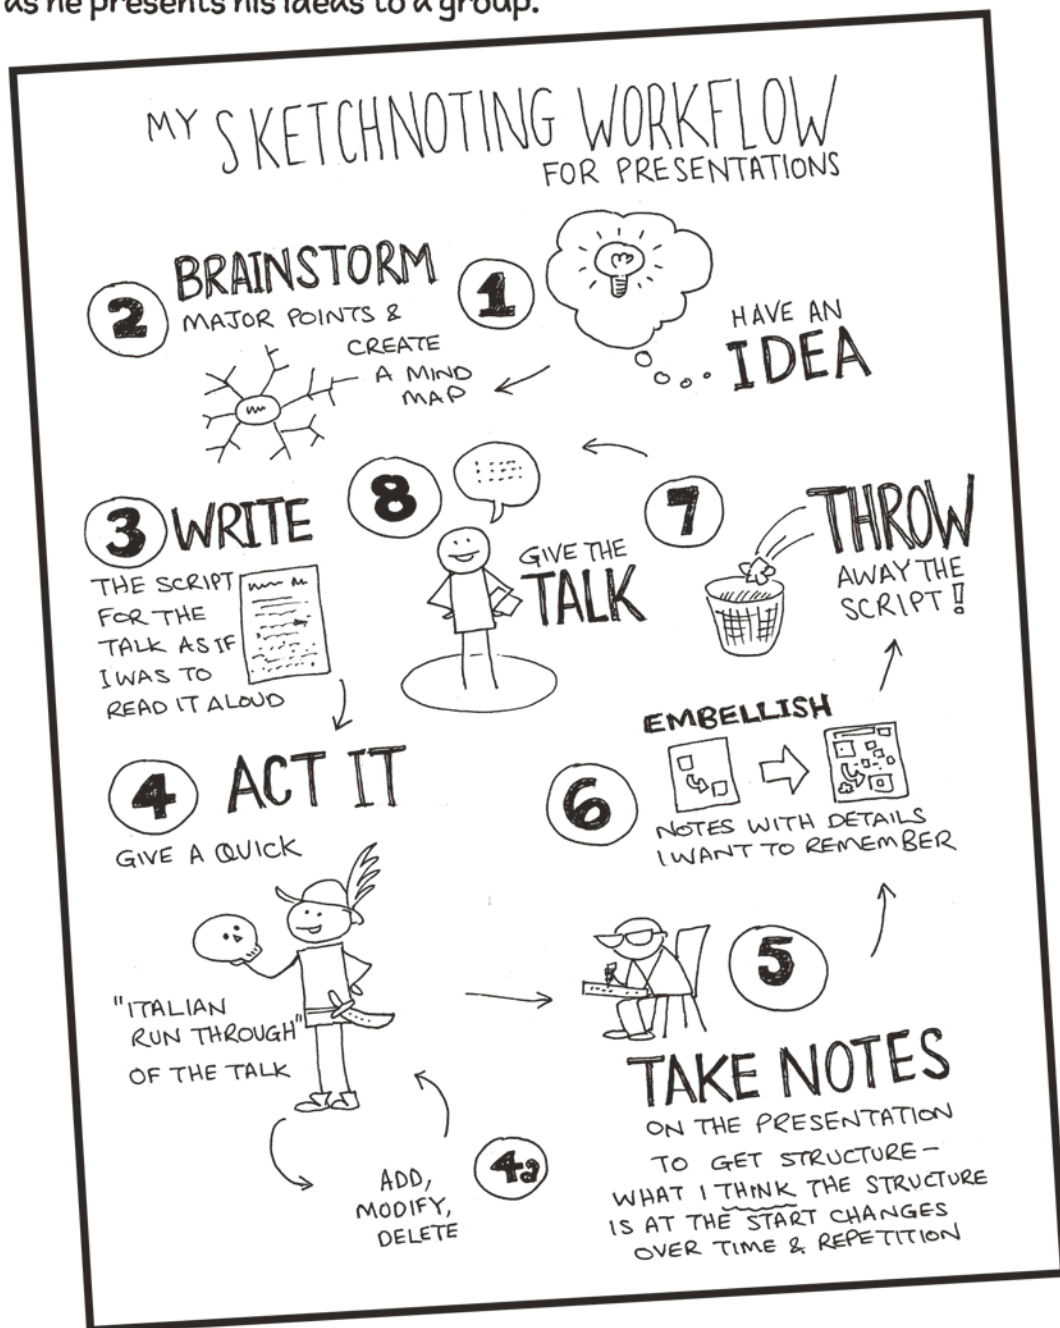 as he presents his ideas to a group.
MY SKETCHNOTING WORKFLOW
FOR PRESENTATIONS
1
HAVE AN
IDEA
2
BRAINSTORM
MAJOR POINTS &
CREATE
A MIND
MAP
3 WRITE
THE SCRIPT
FOR THE
TALK AS IF
I WAS TO
READ IT ALOUD
4 ACT IT
GIVE A QUICK
"ITALIAN
RUN THROUGH"
OF THE TALK
4a
ADD,
MODIFY,
DELETE
5
TAKE NOTES
ON THE PRESENTATION
TO GET STRUCTURE—
WHAT I THINK THE STRUCTURE
IS AT THE START CHANGES
OVER TIME & REPETITION
6
EMBELLISH
NOTES WITH DETAILS
I WANT TO REMEMBER
7
THROW
AWAY THE
SCRIPT!
8
GIVE THE
TALK